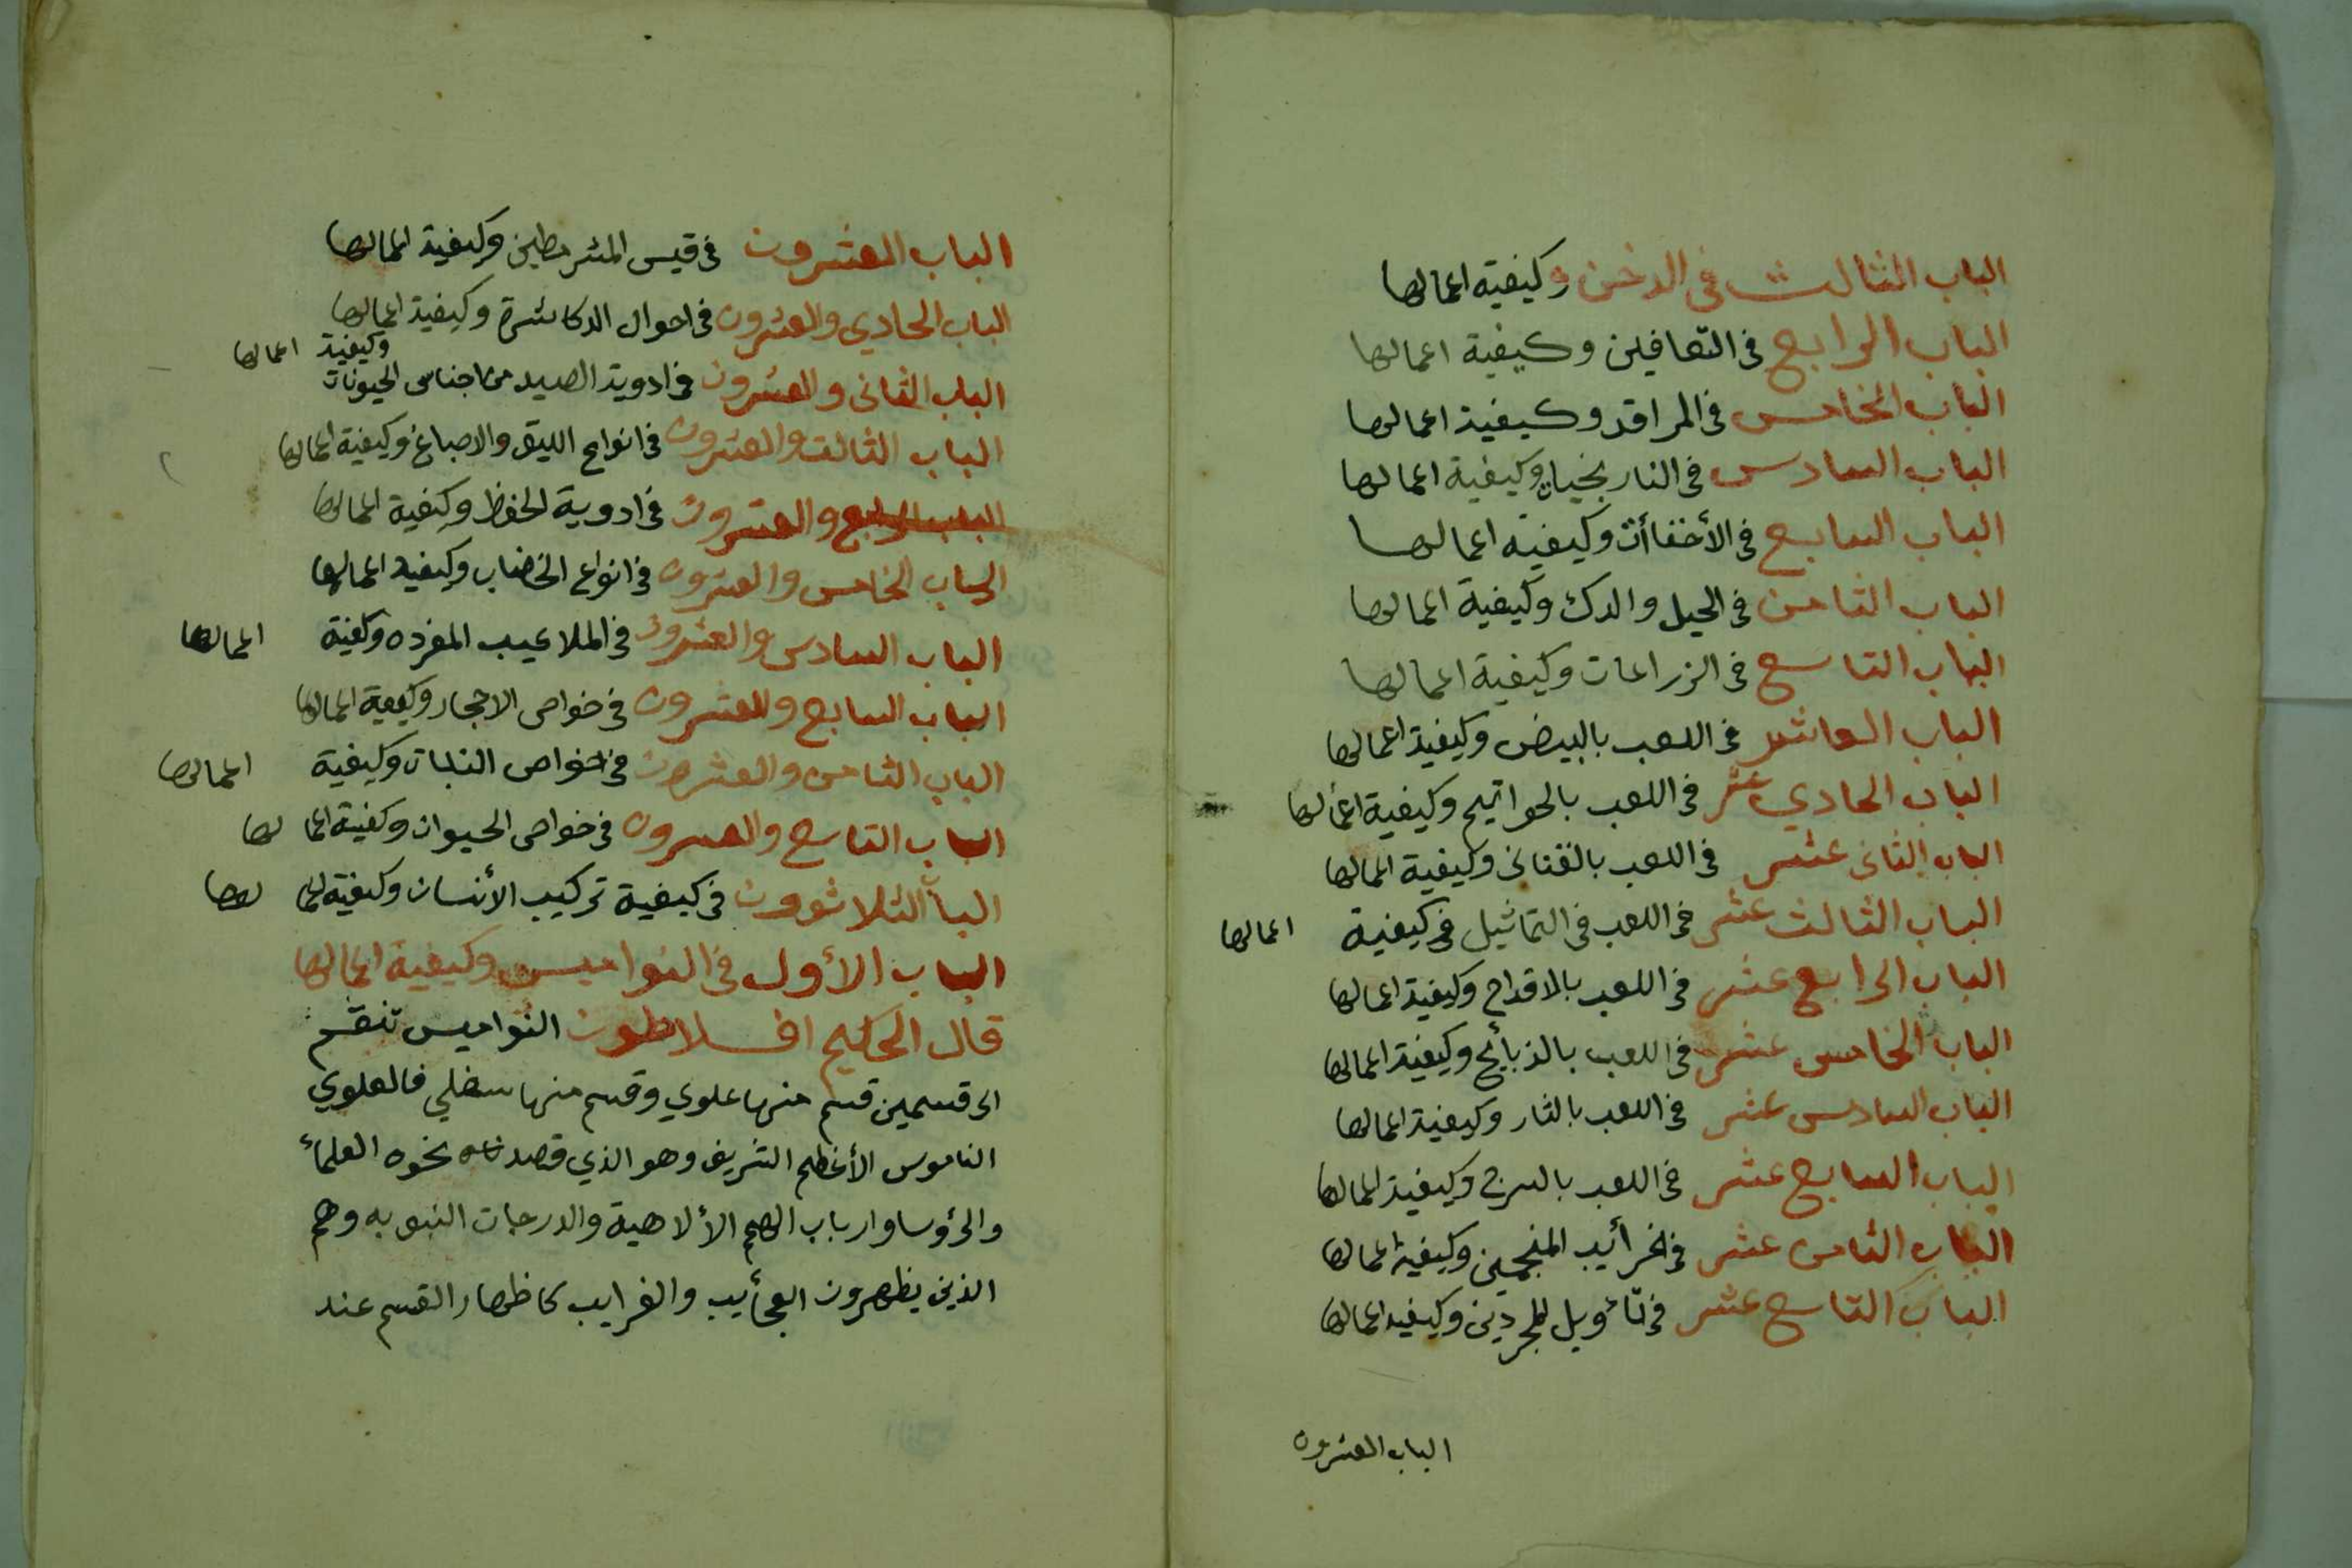 الباب الثالث في الدخن وكيفية اعمالها
الباب الرابع في التعافين وكيفية اعمالها
الباب الخامس في المراقد وكيفية اعمالها
الباب السادس في النارنجيات وكيفية اعمالها
الباب السابع في الأخفاأت وكيفية اعمالها
الباب الثامن في الحيل والدك وكيفية اعمالها
الباب التاسع في الزراعات وكيفية اعمالها
الباب العاشر في اللعب بالبيض وكيفية اعمالها
الباب الحادي عشر في اللعب بالخواتيم وكيفية اعمالها
الباب الثانى عشر في اللعب بالقنانى وكيفية اعمالها
الباب الثالث عشر في اللعب في التماثيل في كيفية اعمالها
الباب الرابع عشر في اللعب بالاقداح وكيفية اعمالها
الباب الخامس عشر في اللعب بالذبأيح وكيفية اعمالها
الباب السادس عشر في اللعب بالنار وكيفية اعمالها
الباب السابع عشر في اللعب بالسرج وكيفية اعمالها
الباب الثامن عشر في خرأيب المنجمين وكيفية اعمالها
الباب التاسع عشر في تأويل المجردين وكيفية اعمالها
الباب العشرون
الباب العشرون في قيس وكيفية اعمالها
الباب الحادي والعشرون في احوال الدكاشرة وكيفية اعمالها
الباب الثانى والعشرون في ادوية الصيد من اجناس الحيونات وكيفية اعمالها
الباب الثالث والعشرون في انواع الليق والاصباغ وكيفية اعمالها
الباب الرابع والعشرون في ادوية الحفظ وكيفية اعمالها
الباب الخامس والعشرون في انواع الخضاب وكيفية اعمالها
الباب السادس والعشرون في الملاعيب المفرده وكفية اعمالها
الباب السابع والعشرون في خواص الاحجار وكيفية اعمالها
الباب الثامن والعشرون في خواص النبات وكيفية اعمالها
الباب التاسع والعشرون في خواص الحيوان وكفية اعمالها
الباب الثلاثوون في كيفية تركيب الأنسان وكيفية اعمالها
الباب الأول في النواميس وكيفية اعمالها
قال الحكيم افلاطون النواميس تنقسم
الى قسمين قسم منها علوي وقسم منها سفلي فالعلوي
الناموس الأعظم الشريف وهو الذي قصد نحوه العلمأ
والرؤسا وارباب الهمم الألاهية والدرجات النبويه وهم
الذين يظهرون العجأيب والغرايب كاظهار القسم عند